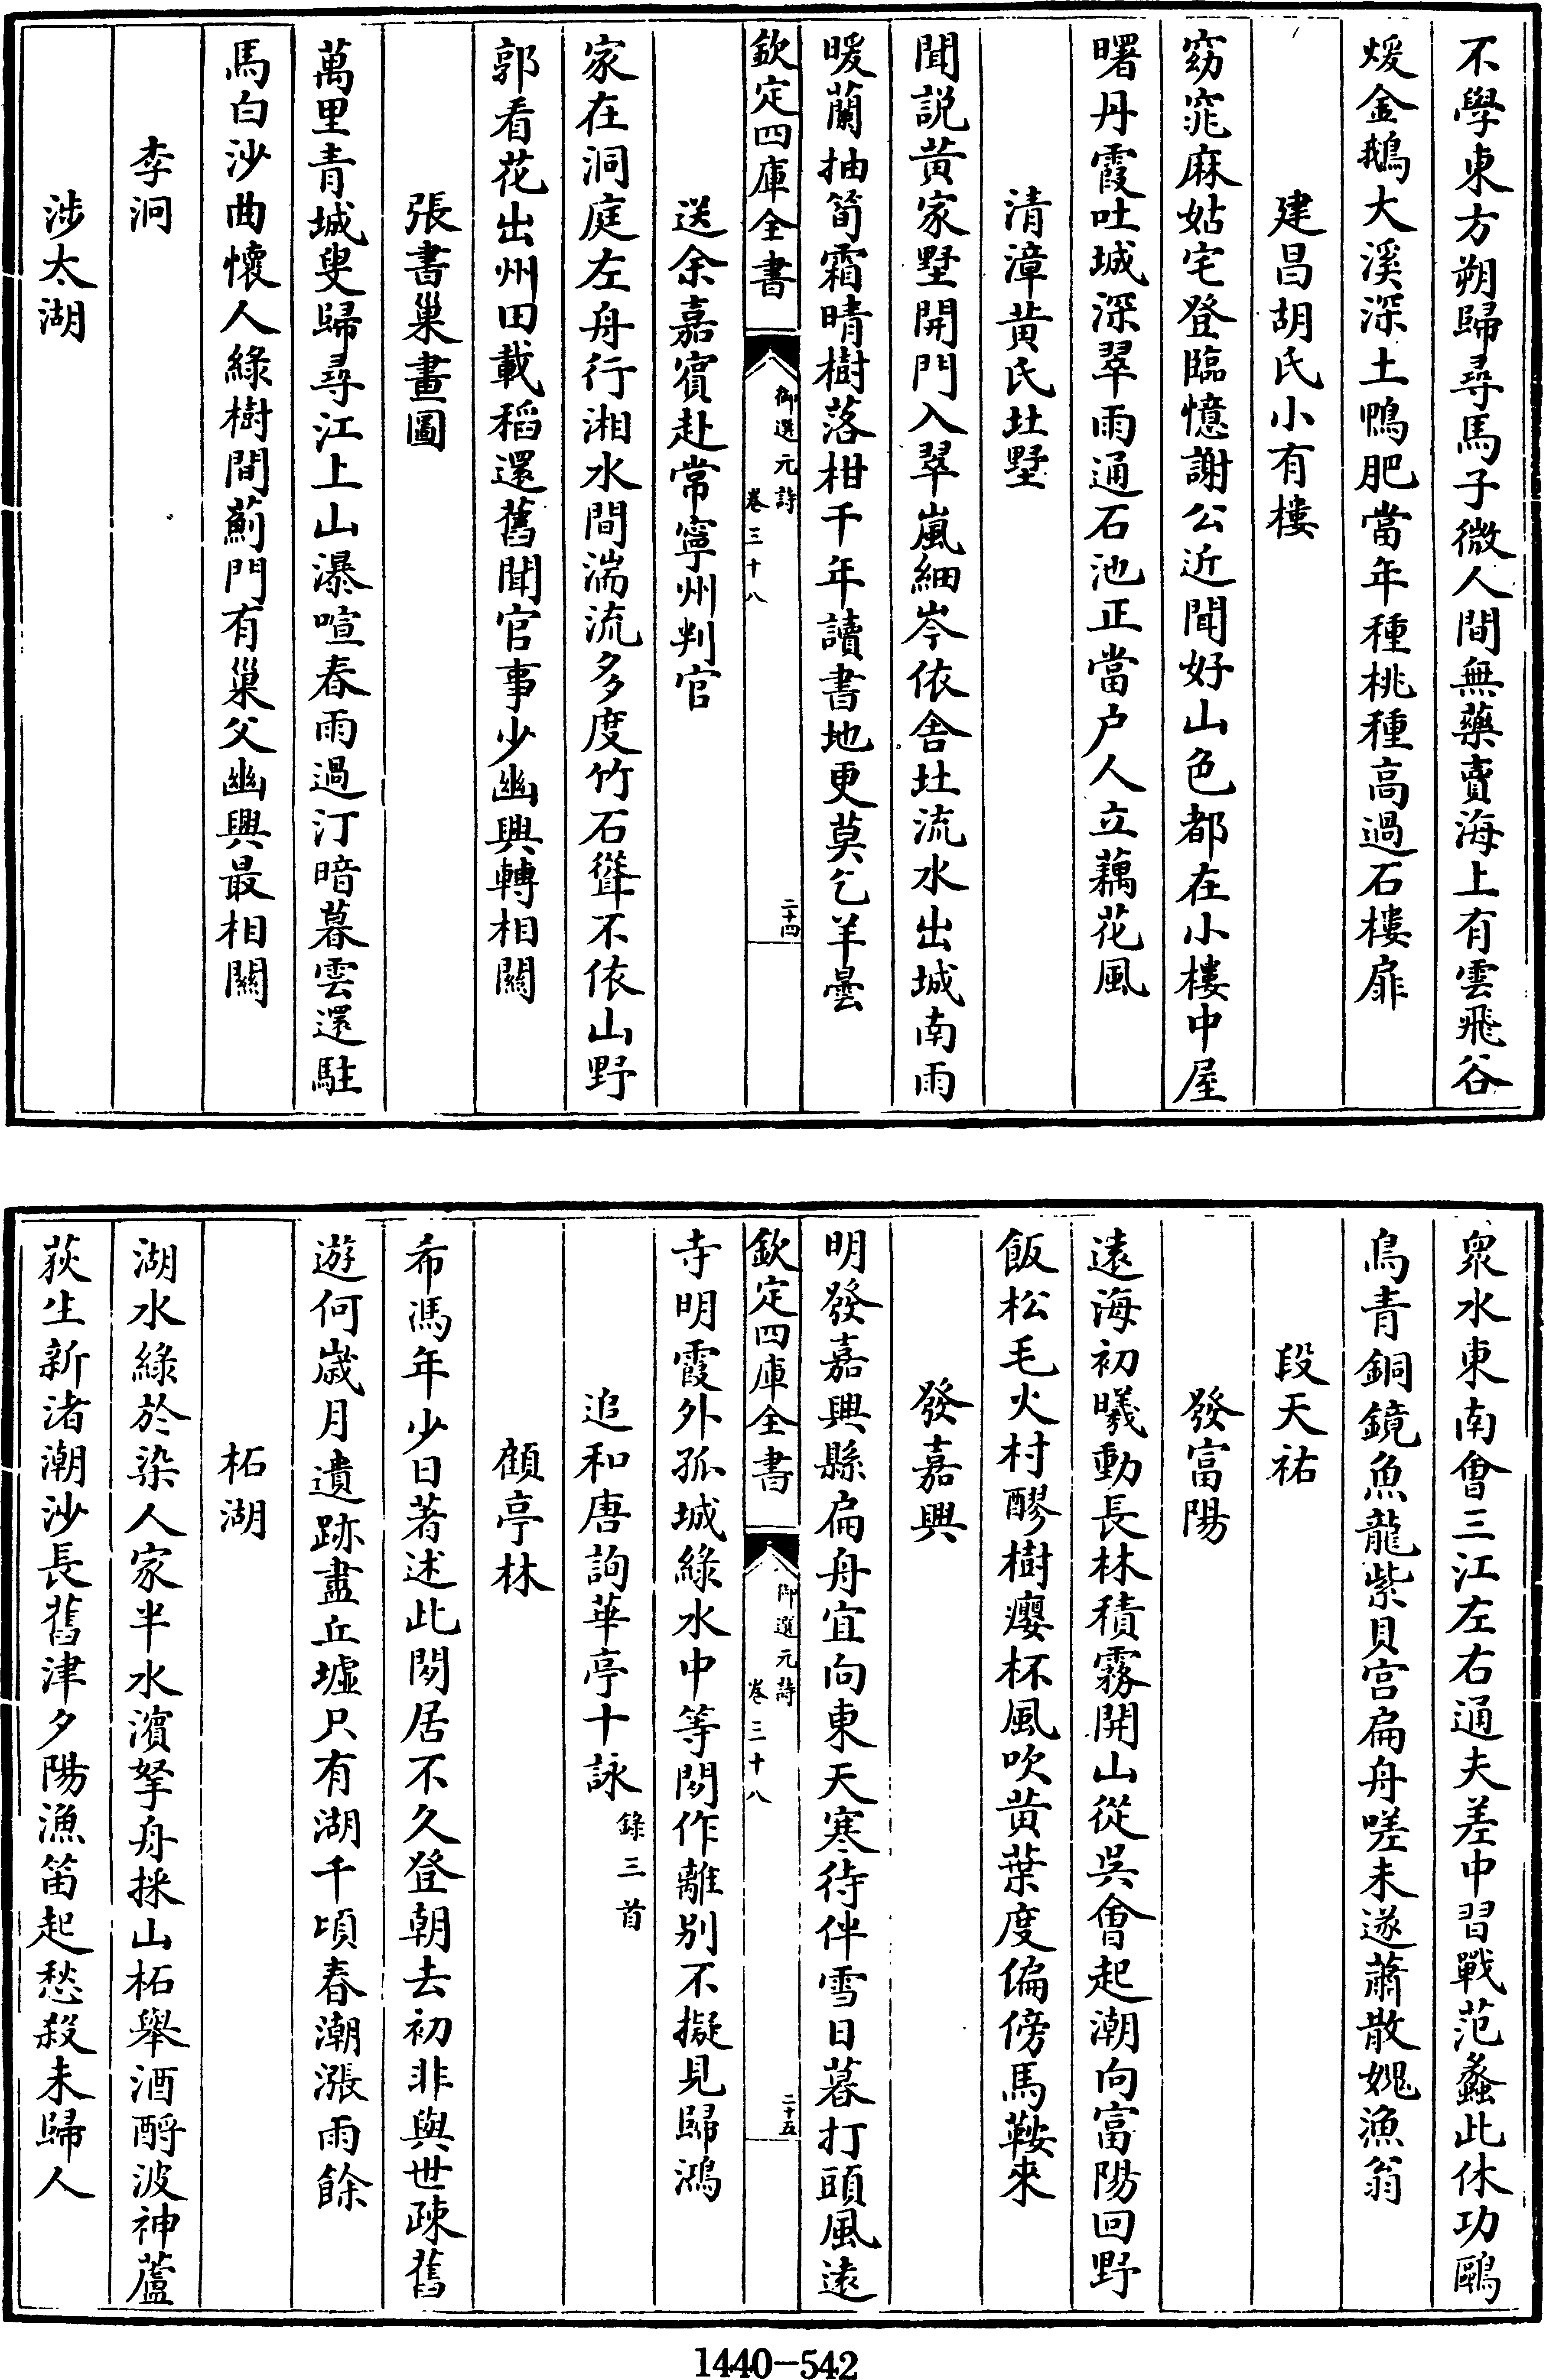 不學東方朔歸尋馬子微人間無藥賣海上有雲飛谷
煖金鵝大溪深土鴨肥當年種桃種高過石樓扉
建昌胡氏小有樓
窈窕麻姑宅登臨憶謝公近聞好山色都在小樓中屋
曙丹霞吐城深翠雨通石池正當户人立藕花風
清漳黄氏北墅
聞説黄家墅開門入翠嵐細岑依舍北流水出城南雨
暖蘭抽筍霜晴樹落柑千年讀書地更莫乞羊曇
欽定四庫全書
御選元詩
卷三十八
二十四
送余嘉賓赴常寧州判官
家在洞庭左舟行湘水間湍流多度竹石聳不依山野
郭看花出州田載稻還舊聞官事少幽興轉相關
張書巢畫圖
萬里青城叟歸尋江上山瀑喧春雨過汀暗暮雲還駐
馬白沙曲懷人綠樹間薊門有巢父幽興最相關
李洞
涉太湖
衆水東南會三江左右通夫差中習戰范蠡此休功鷗
鳥青銅鏡魚龍紫貝宫扁舟嗟未遂蕭散媿漁翁
段天祐
發富陽
遠海初曦動長林積霧開山從吳會起潮向富陽回野
飯松毛火村醪樹癭杯風吹黄葉度偏傍馬鞍來
發嘉興
明發嘉興縣扁舟宜向東天寒待伴雪日暮打頭風遠
欽定四庫全書
御選元詩
卷三十八
二十五
寺明霞外孤城綠水中等閑作離别不擬見歸鴻
追和唐詢華亭十詠錄三首
顧亭林
希馮年少日著述此閑居不久登朝去初非與世疎舊
遊何歲月遺跡盡丘墟只有湖千頃春潮漲雨餘
柘湖
湖水綠於染人家半水濱拏舟採山柘舉酒酹波神蘆
荻生新渚潮沙長舊津夕陽漁笛起愁殺未歸人
1440-542